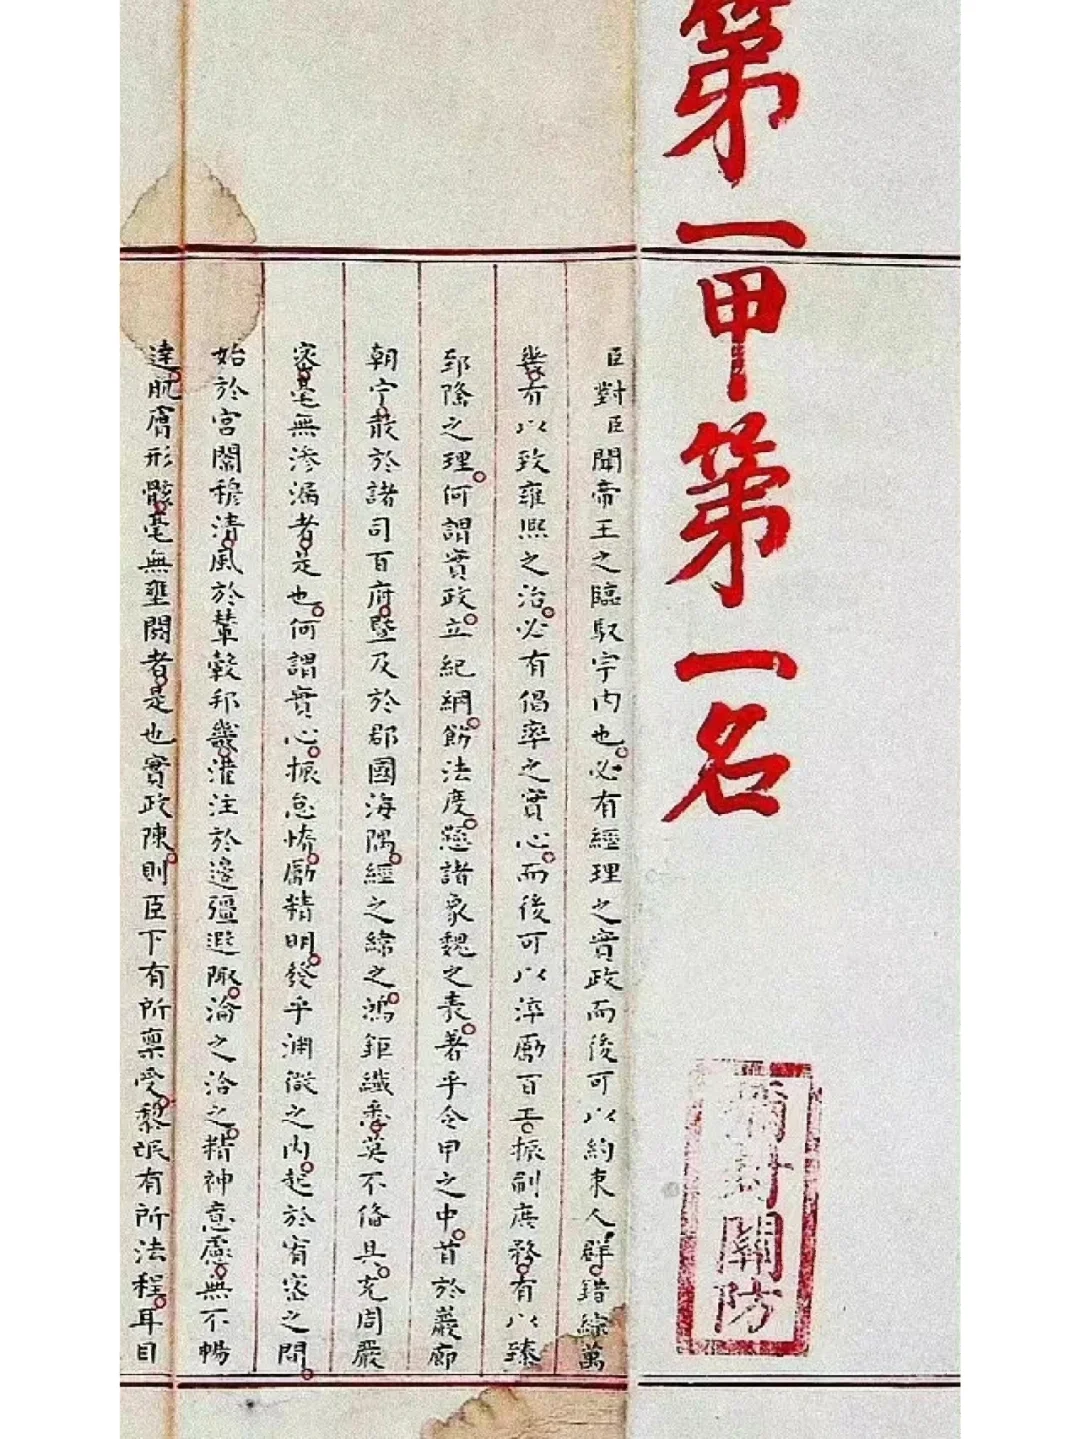 第一甲第一名
彌封關防
臣對臣聞帝王之臨馭宇内也必有經理之實政而後可以約束人群錯綜萬
幾有以致雍熙之治必有倡率之實心而後可以淬勵百工振刷庶務有以臻
郅隆之理何謂實政立紀綱飭法度懸諸象魏之表著乎令甲之中首於巖廊
朝宁散於諸司百府暨及於郡國海隅經之緯之鴻鉅纖悉莫不俻具充周嚴
密毫無滲漏者是也何謂實心振怠惰勵精明發乎淵微之内起於宥密之間
始於宮闈穆清風於輦轂邦畿灌注於邊疆遐陬淪之洽之精神意慮無不暢
達肌膚形骸毫無壅閼者是也實政陳則臣下有所稟受黎氓有所法程耳目